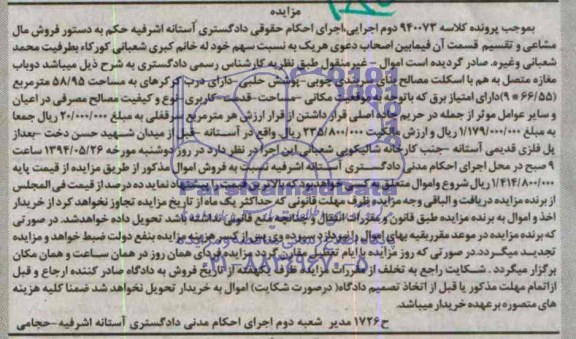 مزایده
بموجب پرونده کلاسه ۹۴۰۰۷۳ دوم اجرایی،اجرای احکام حقوقی دادگستری آستانه اشرفیه حکم به دستور فروش مال
مشاعی و تقسیم قسمت آن فیمابین اصحاب دعوی هریک به نسبت سهم خود له خانم کبری شعبانی کورکاء بطرفیت محمد
شعبانی وغیره. صادر گردیده است اموال – غیرمنقول طبق نظریه کارشناس رسمی دادگستری به شرح ذیل میباشد دوباب
مغازه متصل به هم با اسکلت مصالح بنایی سقف چوبی- پوشش حلبی -دارای درب کرکره‌ای به مساحت ۵۸/۹۵ مترمربع
(۹ * ۶۶/۵۵)دارای امتیاز برق که باتوجه به موقعیت مکانی –مساحت-قدمت- کاربری -نوع و کیفیت مصالح مصرفی در اعیان
و سایر عوامل موثر از جمله در حریم جاده اصلی قرار داشتن از قرار ارزش هر مترمربع سرقفلی به مبلغ ۲۰/۰۰۰/۰۰۰ ریال جمعا
به مبلغ ۱/۱۷۹/۰۰۰/۰۰۰ ریال و ارزش مالکیت ۲۳۵/۸۰۰/۰۰۰ ریال واقع در آستانه -قبل از میدان شهید حسن دخت -بعداز
پل فلزی قدیمی آستانه -جنب کارخانه شالیکوبی شعبانی این اجرا در نظر دارد در روز دوشنبه مورخه ۱۳۹۴/۰۵/۲۶ ساعت
۹ صبح در محل اجرای احکام مدنی دادگستری آستانه اشرفیه نسبت به فروش اموال مذکور از طریق مزایده از قیمت پایه
۱/۴۱۴/۸۰۰/۰۰۰ ریال شروع و اموال متعلق به کسی خواهد بود که بالاترین قیمت را پیشنهاد نماید ده درصد از قیمت فی المجلس
از برنده مزایده دریافت و الباقی وجه مزایده ظرف مهلت قانونی که حداکثر یک ماه از تاریخ مزایده تجاوز نخواهد کرد از خریدار
اخذ و اموال به برنده مزایده طبق قانون و مقررات انتقال و چنانچه منع قانونی نداشته باشد تحویل داده خواهدشد. در صورتی
که برنده مزایده در موعد مقرربقیه بهای اموال را نپردازد سپرده وی پس از کسر هزینه مزایده بنفع دولت ضبط خواهد و مزایده
تجدید میگردد.در صورتی که روز مزایده با ایام تعطیل مقارن گردد مزایده فردای همان روز در همان ساعت و همان مکان
برگزار میگردد . شکایت راجع به تخلف از مقررات مزایده ظرف یکهفته از تاریخ فروش به دادگاه صادر کننده ارجاع و قبل
ازاتمام مهلت مذکور یا قبل از اتخاذ تصمیم دادگاه( درصورت شکایت) اموال به خریدار تحویل نخواهد شد ضمنا کلیه هزینه
های متصوره برعهده خریدار میباشد.
ح۱۷۲۶ مدیر شعبه دوم اجرای احکام مدنی دادگستری آستانه اشرفیه-حجامی